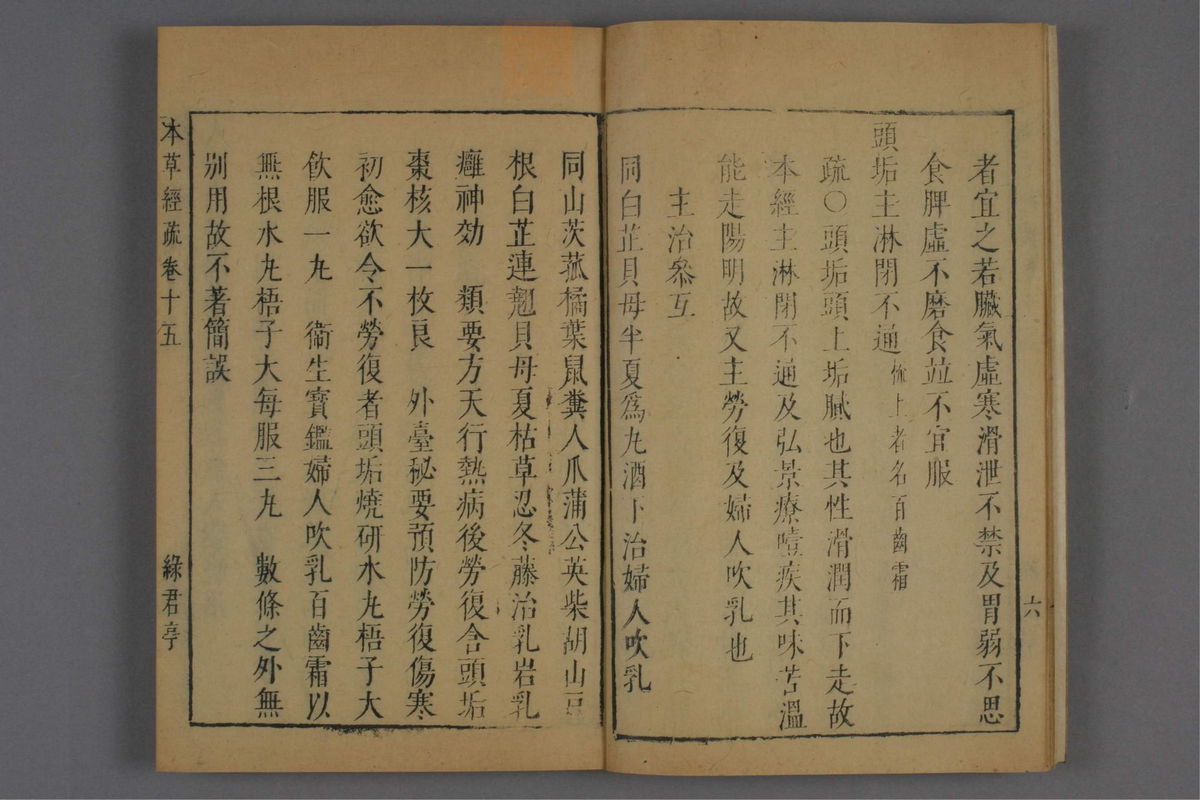 者宜之若臟氣虛寒滑泄不禁及胃弱不思
食脾虛不磨食並不宜服
頭垢主淋閉不通梳上者名百齒霜
疏〇頭垢頭上垢膩也其性滑潤而下走故
本經主淋閉不通及弘景療噎疾其味苦溫
能走陽明故又主勞復及婦人吹乳也
主治參互
同白芷貝母半夏爲丸酒下治婦人吹乳
六
同山茨菰橘葉鼠糞人爪蒲公英柴胡山豆
根白芷連翹貝母夏枯草忍冬藤治乳岩乳
癰神効 類要方天行熱病後勞復含頭垢
棗核大一枚良 外臺秘要預防勞復傷寒
初愈欲令不勞復者頭垢燒研水丸梧子大
飲服一丸 衞生寶鑑婦人吹乳百齒霜以
無根水丸梧子大每服三丸 數條之外無
別用故不著簡誤
本草經疏卷十五 綠君亭